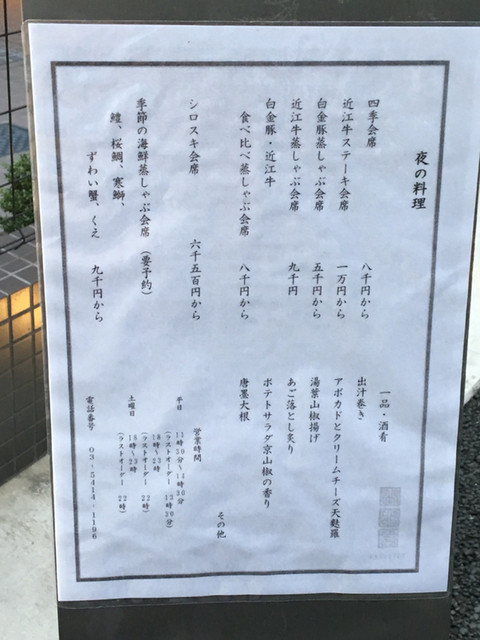 夜の料理
四季会席 八千円から
近江牛ステーキ会席 一万円から
白金豚蒸しゃぶ会席 五千円から
近江牛蒸しゃぶ会席 九千円
白金豚・近江牛
食べ比べ蒸しゃぶ会席 八千円から
シロスキ会席 六千五百円から
季節の海鮮蒸しゃぶ会席 (要予約)
鱧、桜鯛、寒鰤、
ずわい蟹、くえ 九千円から
一品・酒肴
出汁巻き
アボカドとクリームチーズ天麩羅
湯葉山椒揚げ
あご落とし炙り
ポテトサラダ京山椒の香り
唐墨大根
その他
営業時間
平日 11時30分～14時30分
(ラストオーダー 13時30分)
18時～23時
(ラストオーダー 22時)
土曜日 18時～23時
(ラストオーダー 22時)
電話番号 03-5414-1196